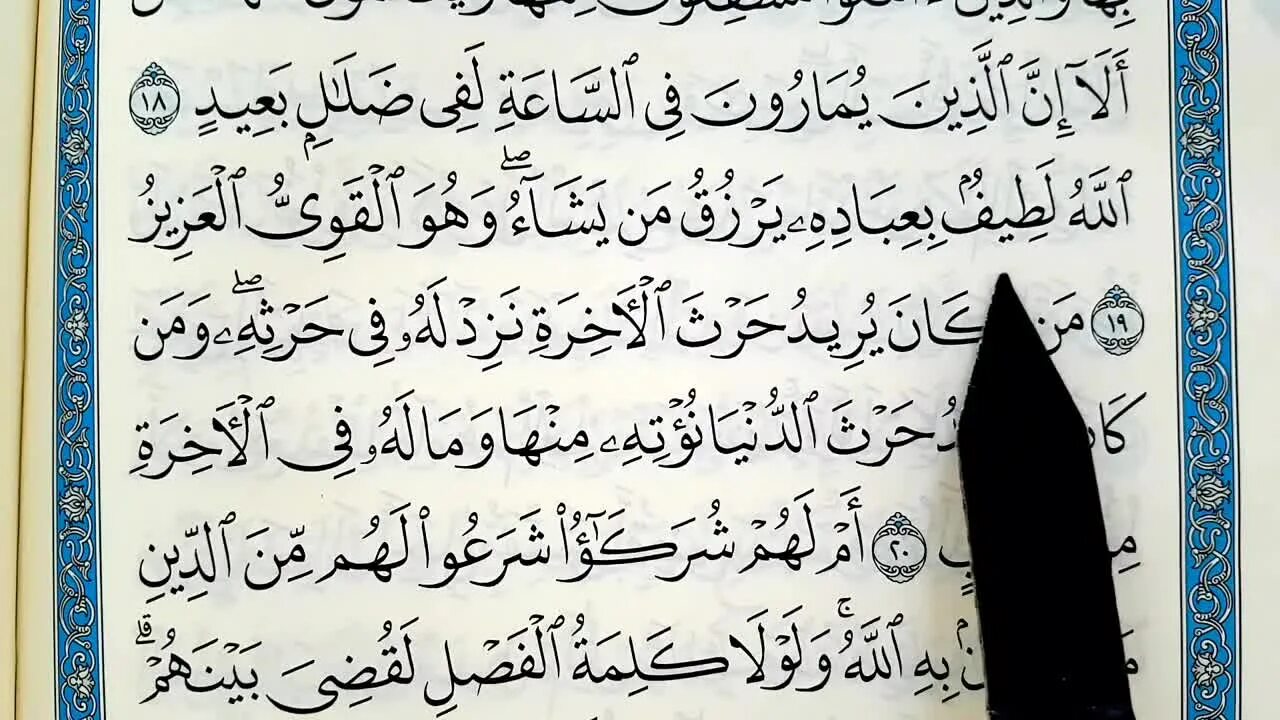 أَلَآ إِنَّ ٱلَّذِينَ يُمَارُونَ فِى ٱلسَّاعَةِ لَفِى ضَلَٰلٍۭ بَعِيدٍ ١٨
ٱللَّهُ لَطِيفٌۢ بِعِبَادِهِۦ يَرْزُقُ مَن يَشَآءُ ۖ وَهُوَ ٱلْقَوِىُّ ٱلْعَزِيزُ
١٩ مَن كَانَ يُرِيدُ حَرْثَ ٱلْءَاخِرَةِ نَزِدْ لَهُۥ فِى حَرْثِهِۦ ۖ وَمَن
حَرْثَ ٱلدُّنْيَا نُؤْتِهِۦ مِنْهَا وَمَا لَهُۥ فِى ٱلْءَاخِرَةِ
٢٠ أَمْ لَهُمْ شُرَكَٰٓؤُا۟ شَرَعُوا۟ لَهُم مِّنَ ٱلدِّينِ
بِهِ ٱللَّهُ ۚ وَلَوْلَا كَلِمَةُ ٱلْفَصْلِ لَقُضِىَ بَيْنَهُمْ ۗ